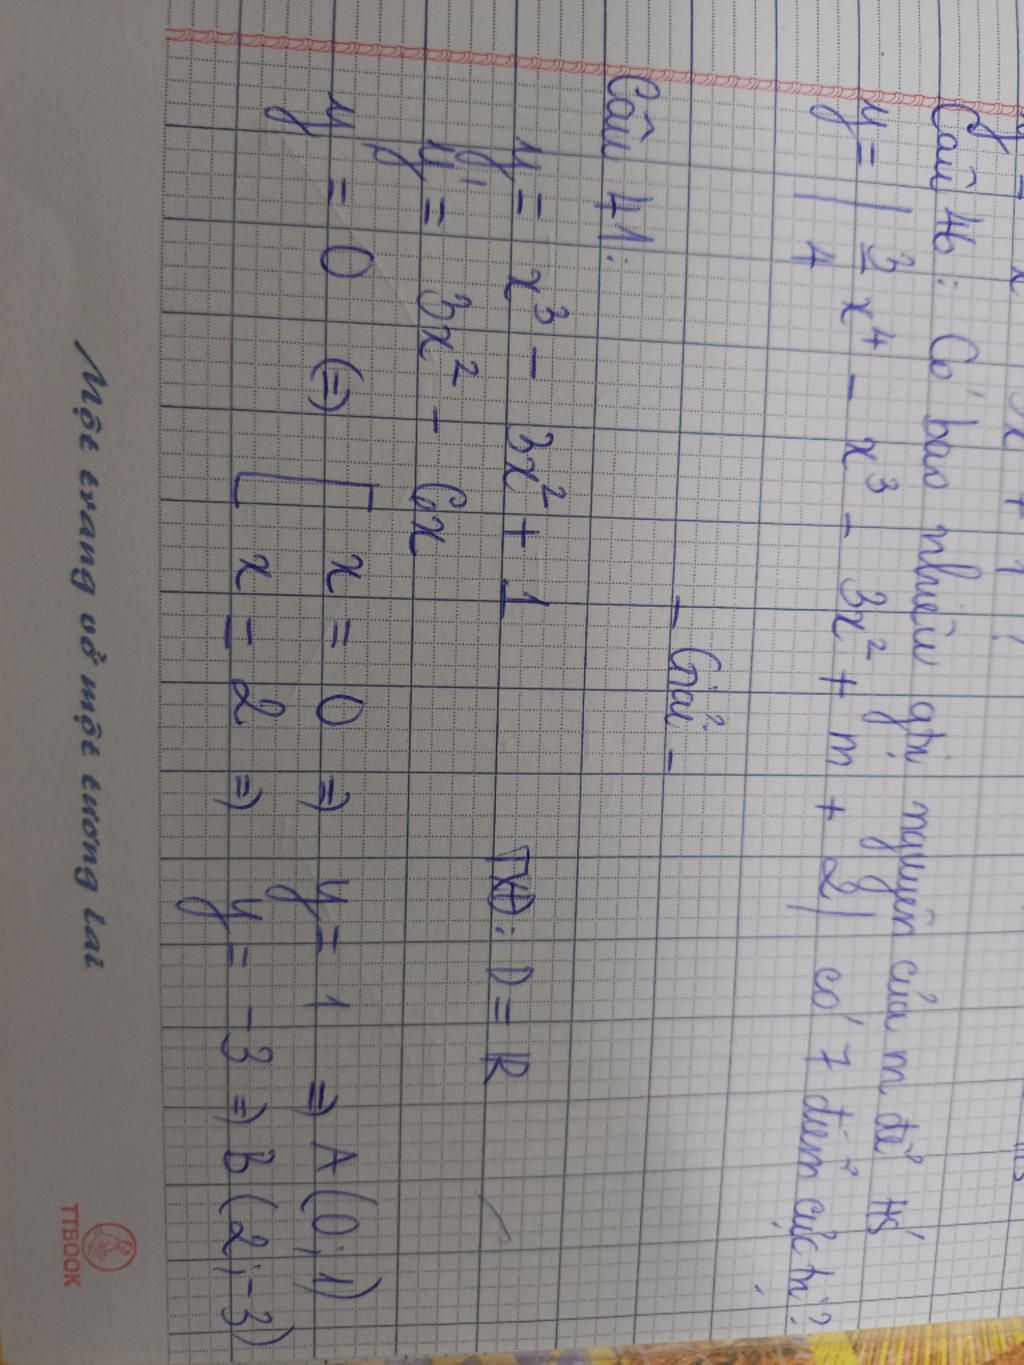 Câu 46: Có bao nhiêu giá trị nguyên của m để HS
y = | 3/4 x⁴ - x³ - 3x² + m + 2 | có 7 điểm cực trị?
- Giải -
Câu 41:
y = x³ - 3x² + 1 TXĐ: D = R
y' = 3x² - 6x
y = 0 (=) [ x = 0 => y = 1 => A (0; 1)
x = 2 => y = -3 => B (2; -3)
Một trang vở một tương lai
TTBOOK